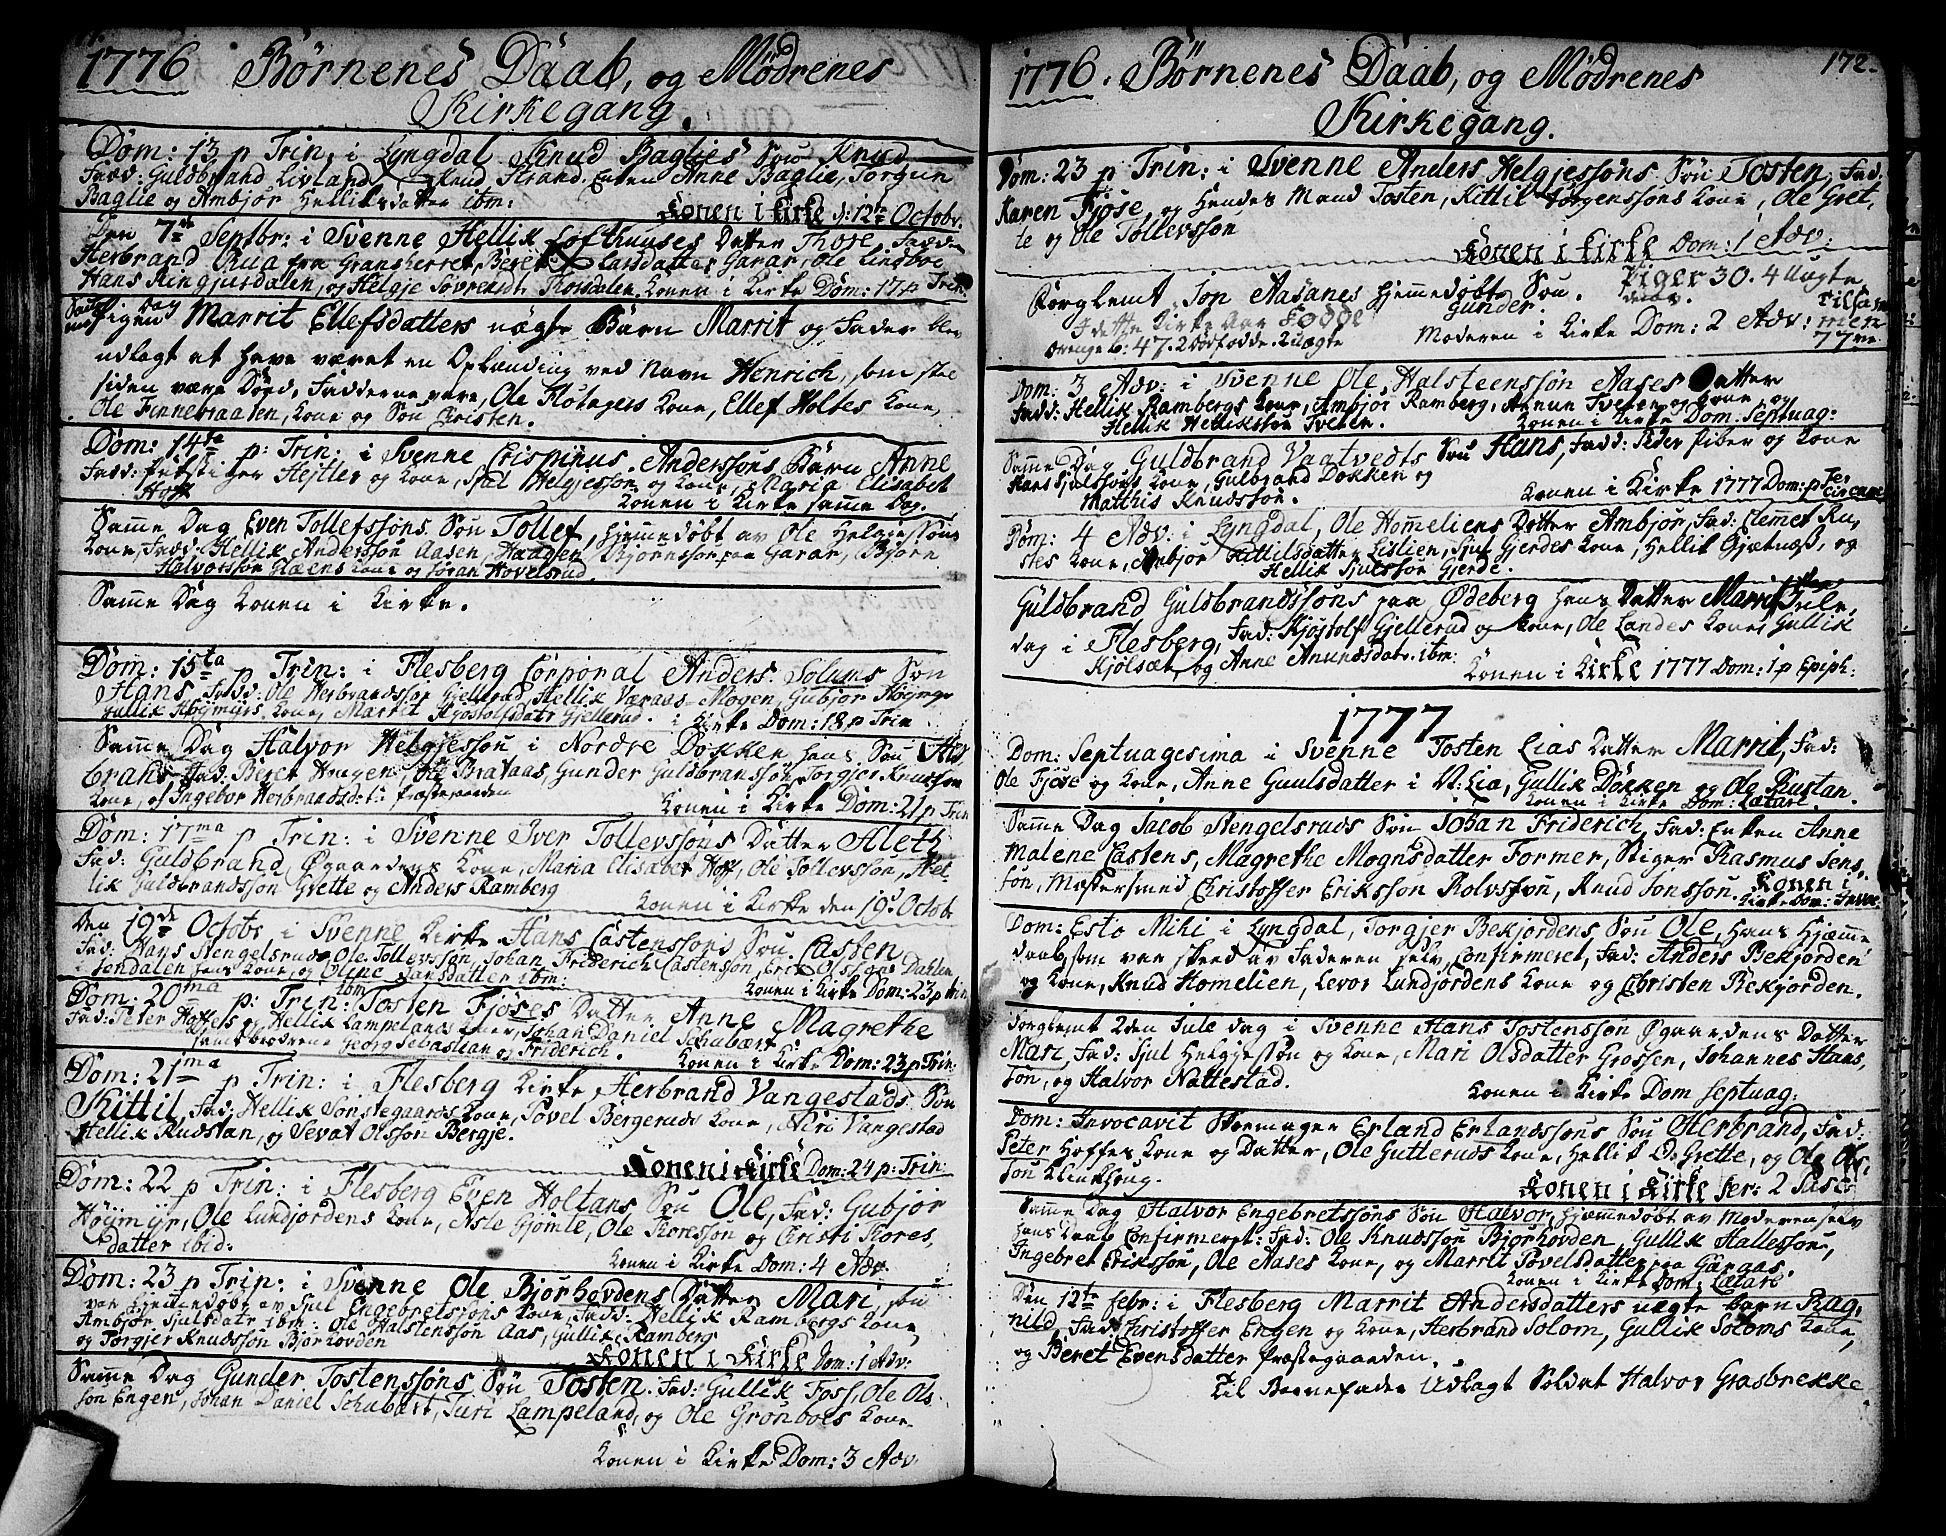 1776 Börnenes Daab, og Mödrenes
Kirkegang.
Dom: 13 p Trin: i Lyngdal Knud Baglies Sön Knud
Fad: Guldbrand Livland Knud Strand. Enken Anne Baglie, Torgun
Baglie og Ambjör Helliksdatter ibm:
Konen i Kirke d: 12te Octobr.
Den 7de Septbr: i Svenne Hellik Lofthuuses Datter Thore, Fad:
Herbrand Rua fra Gransherret, Beret Larsdatter Garar, Ole Lindboe
Hans Ringjusdalen, og Helgje Sövrensdtr Korsdalen. Konen i Kirke Dom: 17 p Trin:
Samme Dag Pigen Marrit Ellefsdatters uægte Börn Marrit og Fader blev
udlagt at have været en Oplænding ved Navn Henrich, som skal
siden være Död, Fadderne vare, Ole Flötagers Kone, Ellef Holtes Kone,
Ole Finnebraaten, Kone og Sön Kristen.
Dom: 14te p: Trin: i Svenne Crispinus Anderssöns Barn Anne
Fad: Hejtler og Kone, Helgjessön og Kone, Maria Elisabet
Hoff Konen i Kirke samme Dag.
Samme Dag Even Tollefssöns Sön Tollef, hjemmedöbt av Ole Helgjessöns
Kone, Fad: Hellik Anderssön Aasen, Haagen Björnssön paa Garar, Björn
Halvorssön Kone og Jöran Hovelsrud.
Samme Dag Konen i Kirke.
Dom: 15ta p Trin: i Flesberg Corporal Anders Solums Sön
Hans, Fadd: Ole Herbrandssön Gjellerud, Hellik Væraas-Mogen, Gubjör Höjmyr
Gullik Höjmyrs Kone, Marrit Kjöstolfsdatr Gjellerud. i Kirke Dom: 18 p Trin
Samme Dag Halvor Helgjessön i Nordre Dokken hans Sön Herbrand
Fad: Beret Haugen, Ole Brataas, Gunder Guldbranssön, Torgjer Knutssöns
Kone, og Ingebor Herbrandsdtr: Præstegaarden Konen i Kirke Dom: 21 p Trin
Dom: 17ma p Trin: i Svenne Iver Tollevssöns Datter Aleth
Fad: Guldbrand Ögaardens Kone, Maria Elisabet Hoff, Ole Tollevssön, Hel-
lik Guldbrandssön Grette og Anders Ramberg
Konen i Kirke den 19d Octob:
Den 19de Octobr i Svenne Kirke Hans Castenssöns Sön Casten
Fad: Hans Stengelsrud, Ole Tollevssön, Johan Friderich Castensön, Erik Olssön Dahlen
i Jondalen hans Kone, og Oline Larsdatter ibm: Konen i Kirke Dom: 23 p Trin
Dom: 20ma p: Trin: ibm Tosten Fjöses Datter Anne Magrethe
Fad: Peter Hoffes og Hellik Lampelands Koner, Johan Daniel Schubart
samt brödrene Georg Sebastian og Friderich. Konen i Kirke Dom: 23 p Trin
Dom: 21ma p Trin: i Flesberg Kirke Herbrand Vangestads Sön
Kittil, Fad: Hellik Sönstegaards Kone, Tövel Bergeruds Kone, Siri Vangestad
Hellik Rudstan, og Sevat Olssön Bergje.
Konen i Kirke Dom: 24 p: Trin:
Dom: 22 p Trin: i Flesberg Even Holtans Sön Ole, Fad: Gubjör
Höjmyr, Ole Lundjordens Kone, Asle Gjömle, Ole Thoressön og Christi Thores,
datter ibid: Konen i Kirke Dom: 4 Adv.
Dom: 23 p Trin: i Svenne Ole Björhovdens Datter Mari, som
var hjemmedöbt av Sjul Engebretssöns Kone, Fadd: Hellik Rambergs Kone,
Ambjör Sjulsdatr ibm: Ole Halstenssön Aas, Gullik Ramberg
og Torgjer Knudssön Björhovden
Konen i Kirke Dom: 1 Adv:
Samme Dag Gunder Tostenssöns Sön Tosten. Fad: Gullik Foss, Ole Ols,
sön Engen, Johan Daniel Schubart, Turi Lampeland, og Ole Grönboes Kone.
Konen i Kirke Dom: 3 Adv.
172.
1776. Börnenes Daab, og Mödrenes
Kirkegang.
Dom: 23 p Trin: i Svenne Anders Helgjessöns Sön Tosten, Fad:
Karen Fjöse, og hendes Mand Tosten, Kittil Törgenssöns Kone, Ole Gret,
te og Ole Tollevssön
Konen i Kirke Dom: 1 Adv:
Forglemt Jon Aasanes hjemmedöbte Sön Gunder. Piger 30. 4 Uægte
I dette Kirke Aar Födde
Drenge b: 47. 2 dödfödde. 2 uægte Moderen i Kirke Dom: 2 Adv: tilsammen
77ve
Dom: 3 Adv: i Svenne Ole Halsteenssön Aases Datter
Fad: Hellik Rambergs Kone, Ambjör Ramberg, Kone, og
Hellik Helliksson Tveten. Konen i Kirke Dom: Septuag:
Samme Dag Guldbrand Vaatvedts Sön Hans, Fad: Peder Piber og Kone
Hans Sjulssöns Kone, Gulbrand Dokken og
Matthis Knudssön. Konen i Kirke 1777 Dom: p
Dom: 4 Adv: i Lyngdal, Ole Hommeliens Datter Ambjör, Fad: Clemet Ru,
stes Kone, Ambjör Kittilsdatter Lislien, Sjul Gjerdes Kone, Hellik Gjætnæs, og
Hellik Sjulssön Gjerde.
Guldbrand Guldbrandssöns paa Ödeberg hans Datter Marrit Jule,
dag i Flesberg, Fad: Kjöstolf Gjellerud og Kone, Ole Landes Kone, Gullik
Kjölsæt, og Anne Anundsdatr. ibm: Konen i Kirke 1777 Dom: 1 p Epiph:
1777
Dom: Septuagesima i Svenne Tosten Lias Datter Marrit, Fad:
Ole Fjöse og Kone, Anne Guulsdatter i N: Lia, Gullik Dokken og Ole Rustan.
Konen i Kirke Dom: Lætare.
Samme Dag Jacob Stengelsruds Sön Johan Friderich, Fad: Enken Anne
Malene Castens, Magrethe Mognsdatter Former, Stiger Rasmus Jens,
sön, Mæstersmed Christoffer Erikssön Rolvssön, Knud Jonssön. Konen i
Kirke Dom: Invoc.
Dom: Esto Mihi i Lyngdal, Torgjer Bekjordens Sön Ole, hans Hjæmme
daab som var skeed av Faderen selv, Confirmeret, Fad: Anders Bekjorden
og Kone, Knud Homelien, Levor Lundjordens Kone og Christen Bekjorden.
Forglemt 2den Jule dag i Svenne Hans Tostenssön Ögaardens Datter
Mari, Fad: Sjul Helgjessön og Kone, Mari Olsdatter Grossen, Johannes Hans,
sön, og Halvor Nattestad. Konen i Kirke Dom Septuag:
Dom: Invocavit Skoemager Erland Erlandssöns Sön Herbrand, Fad:
Peter Hoffes Kone og Datter, Ole Gutteruds Kone, Hellik Grette, og Ole Ols,
sön Klinkhong. Konen i Kirke fer: 2 Pasc:
Samme Dag Halvor Engebretssöns Sön Halvor, hjæmmedöbt av Moderen selv
hans Daab Confirmeret: Fad: Ole Knudssön Björhovden, Gullik Hallessön,
Ingebret Erikssön, Ole Aases Kone, og Marrit Povelsdatter paa Garaas.
Konen i Kirke Dom: Lætare
Den 12te febr: i Flesberg Marrit Andersdatters uægte barn Rag,
nild, Fad: Christoffer Engen og Kone, Herbrand Solom, Gullik Soloms Kone,
og Beret Evensdatter Præstegaarden.
Til Barnefader Udlagt Soldat Halvor Grasbrekke